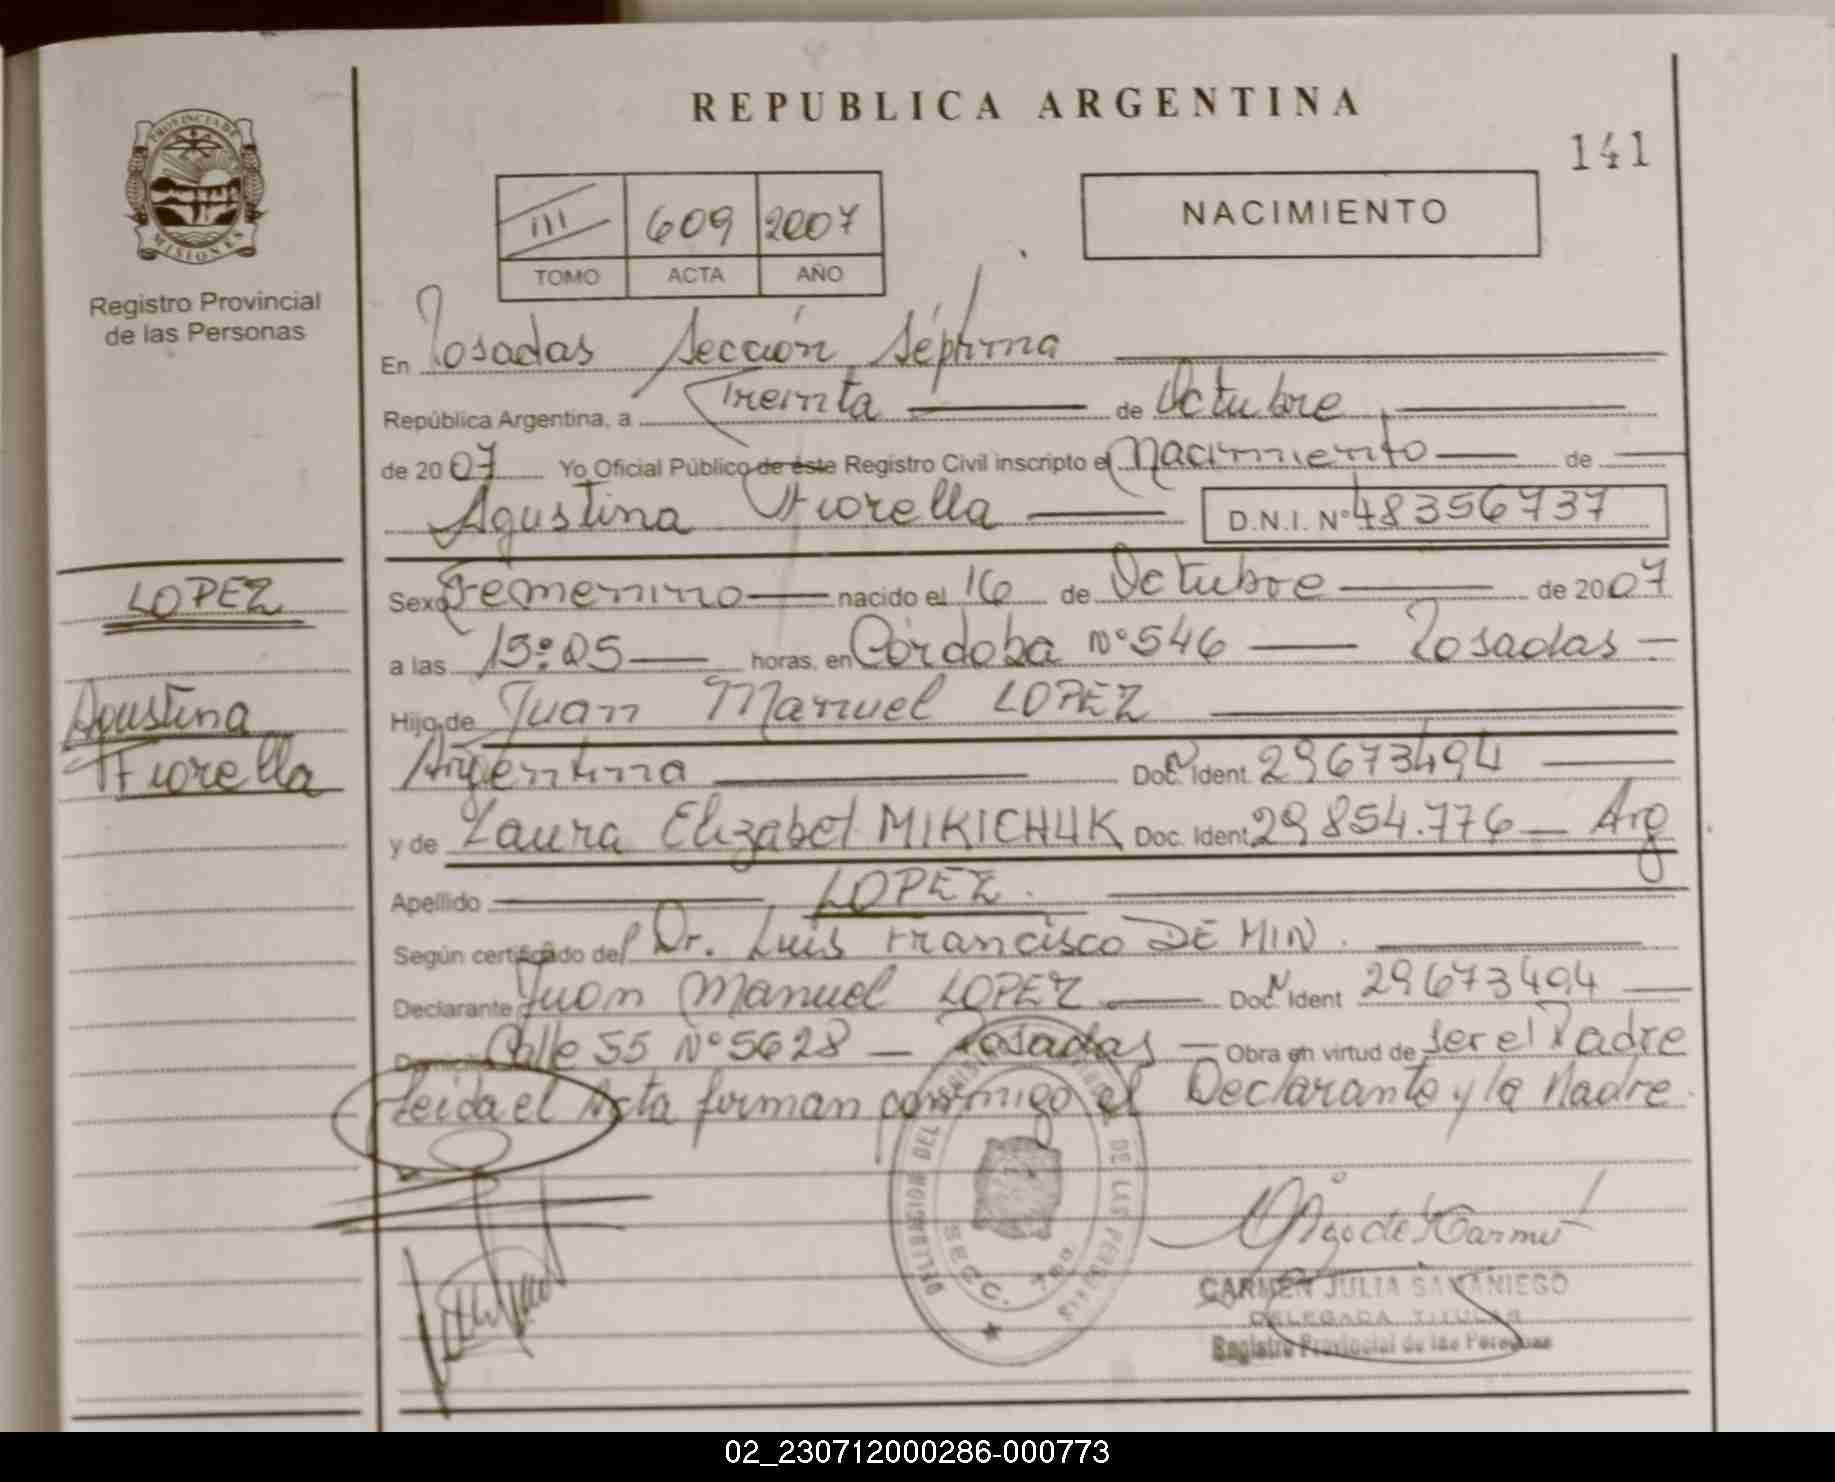 REPUBLICA ARGENTINA
141
PROVINCIA DE
MISIONES
Registro Provincial
de las Personas
III 609 2007
TOMO ACTA AÑO
NACIMIENTO
En Posadas Sección Séptima
República Argentina, a Treinta de Octubre
de 2007 Yo Oficial Público de éste Registro Civil inscripto el Nacimiento de
Agustina Fiorella D.N.I. Nº 48356737
LOPEZ
Agustina
Fiorella
Sexo Femenino nacido el 16 de Octubre de 2007
a las 15:05 horas, en Córdoba Nº 546 Posadas
Hijo de Juan Manuel LOPEZ
Argentina Doc. Ident. 29673494
y de Laura Elizabet MIKICHUK Doc. Ident. 29854.776 Arg
Apellido LOPEZ
Según certificado del Dr. Luis Francisco DE MIN.
Declarante Juan Manuel LOPEZ Doc. Ident 29673494
Domicilio Calle 55 Nº 5628 - Posadas - Obra en virtud de ser el Padre
Leida el Acta firman conmigo el Declarante y la Madre.
DELEGACION DEL REGISTRO DE LAS PERSONAS
SECC. 7ma
CARMEN JULIA SAMANIEGO
DELEGADA TITULAR
Registro Provincial de las Personas
02_230712000286-000773